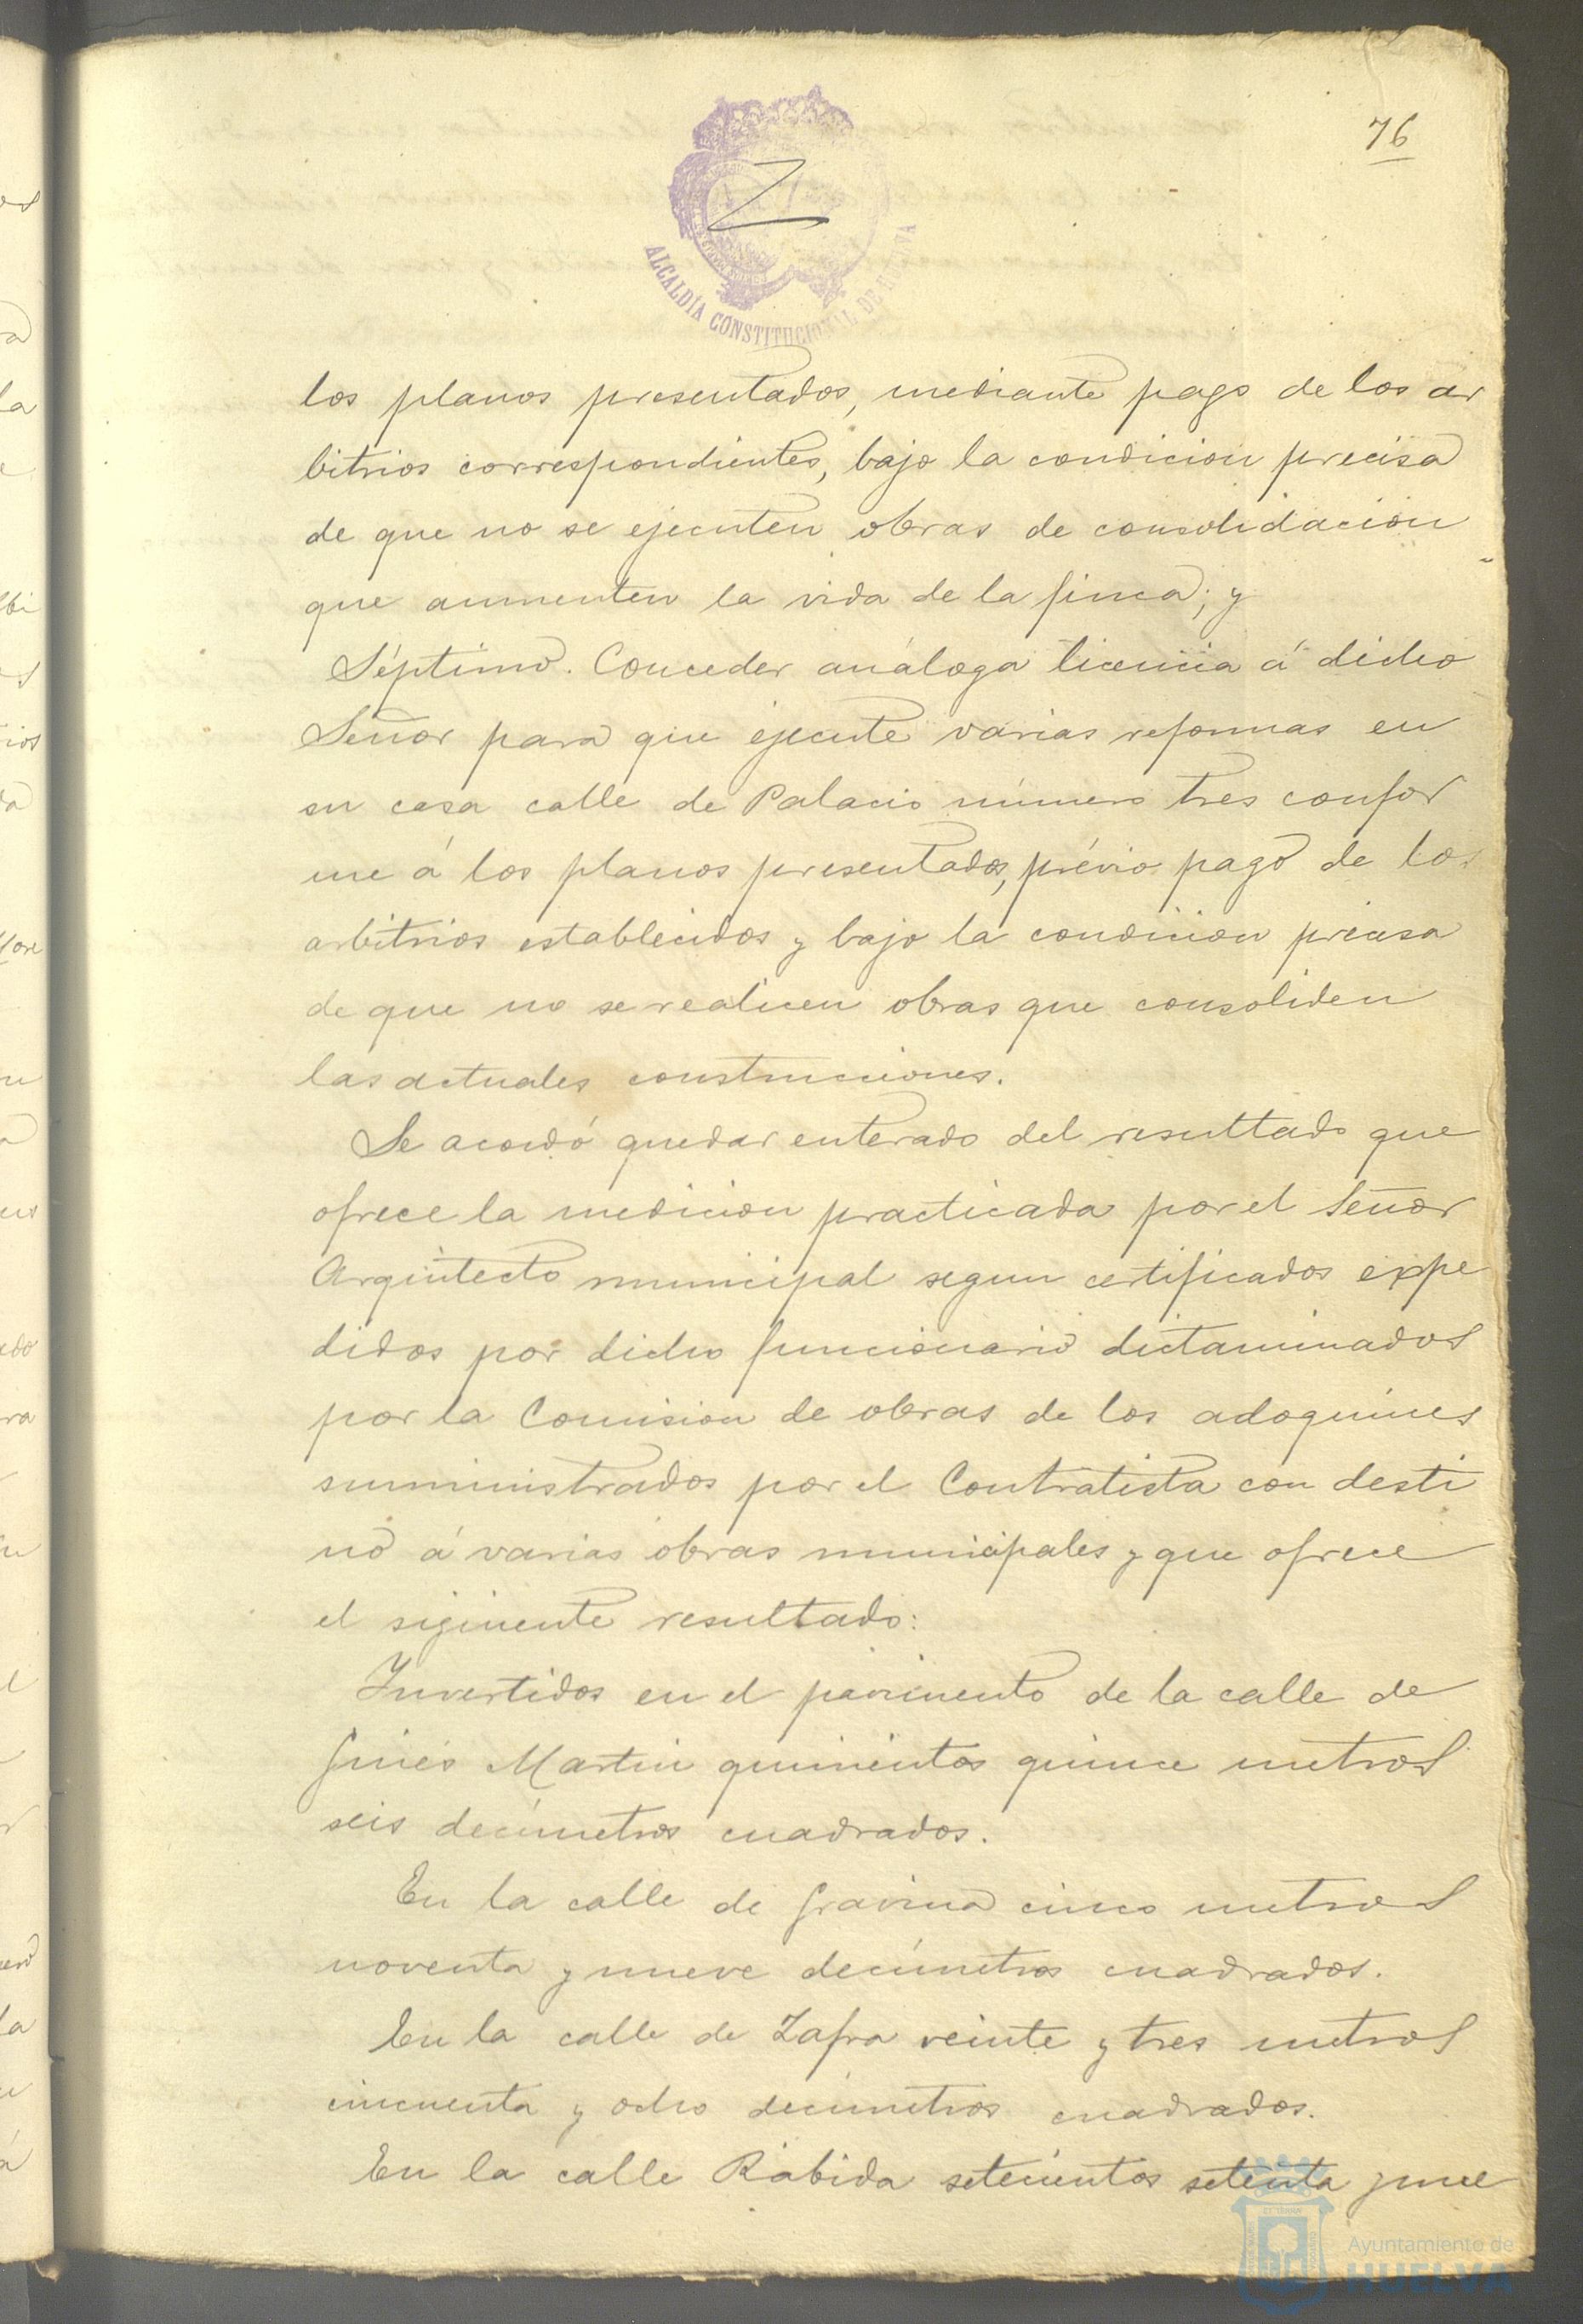 76
ALCALDÍA CONSTITUCIONAL DE HUELVA
los planos presentados, mediante pago de los ar
bitrios correspondientes, bajo la condicion precisa
de que no se ejecuten obras de consolidacion
que aumenten la vida de la finca; y
Séptimo. Conceder análoga licencia á dicho
Señor para que ejecute varias reformas en
su casa calle de Palacio número tres confor
me á los planos presentados, prévio pago de los
arbitrios establecidos y bajo la condicion precisa
de que no se realicen obras que consoliden
las actuales construcciones.
Se acordó quedar enterado del resultado que
ofrece la medicion practicada por el Señor
Arquitecto municipal segun certificados expe
didos por dicho funcionario dictaminados
por la Comision de obras de los adoquines
suministrados por el Contratista con desti
no á varias obras municipales y que ofrece
el siguiente resultado:
Invertidos en el pavimento de la calle de
Ginés Martin quinientos quince metros
seis decímetros cuadrados.
En la calle de Gravina cinco metros
noventa y nueve decímetros cuadrados.
En la calle de Zafra veinte y tres metros
cincuenta y ocho decímetros cuadrados.
En la calle Rábida setecientos setenta y nue
Ayuntamiento de
HUELVA